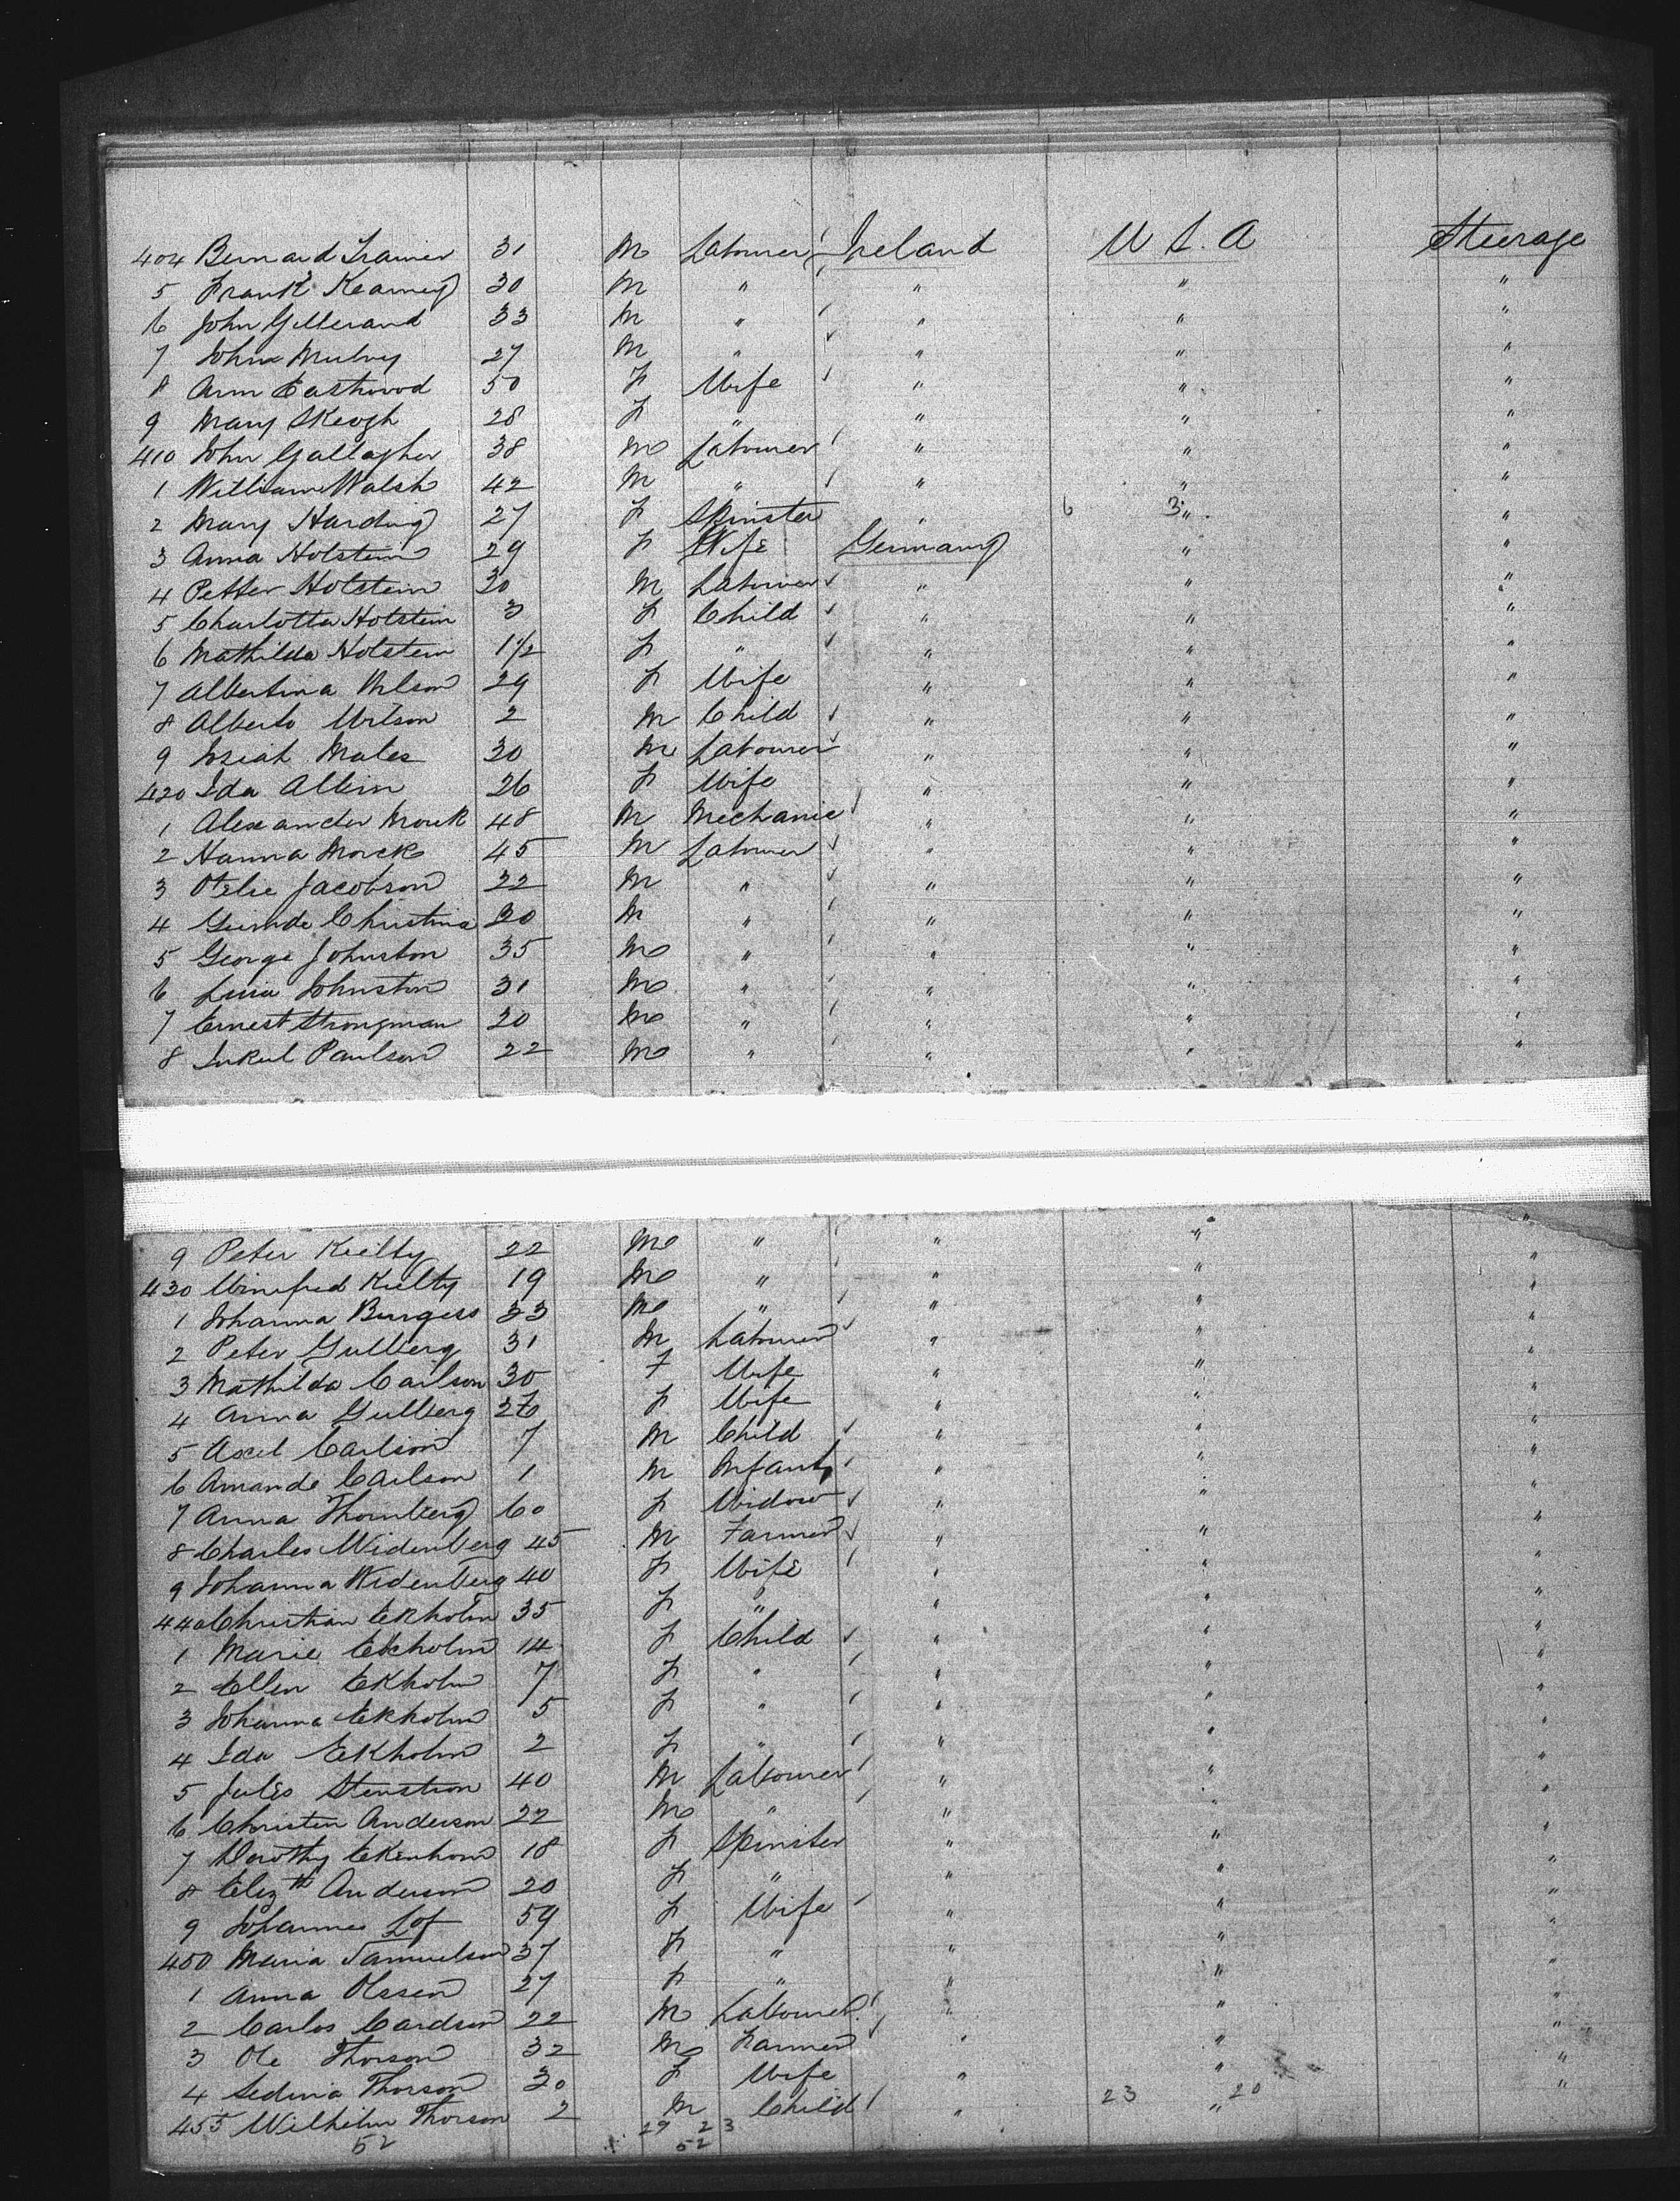 404 Bernard Trainer 31 M Labourer Ireland U S A Steerage
5 Frank Kearney 30 M " " " "
6 John Gilleran 33 M " " " "
7 John Mulvy 27 M " " " "
8 Ann Eastwood 50 F Wife " " "
9 Mary Skeogh 28 F " " " "
410 John Gallagher 38 M Labourer " " "
1 William Walsh 42 M " " " "
2 Mary Harding 27 F Spinster " 6 3 " "
3 Anna Holstein 29 F Wife Germany " "
4 Petter Holstein 30 M Labourer " " "
5 Charlotta Holstein 3 F Child " " "
6 Mathilda Holstein 1 1/2 F " " " "
7 Albertina Wilson 29 F Wife " " "
8 Alberto Wilson 2 M Child " " "
9 Josiah Males 30 M Labourer " " "
420 Ida Albin 26 F Wife " " "
1 Alexander Mork 48 M Mechanic " " "
2 Hanna Morck 45 M Labourer " " "
3 Otelie Jacobson 22 M " " " "
4 Christina 20 M " " " "
5 George Johnston 35 M " " " "
6 Johnston 31 M " " " "
7 Ernest Strongman 20 M " " " "
8 Paulson 22 M " " " "
9 Peter Kielty 22 M " " " "
430 Winifred Kielty 19 M " " " "
1 Johanna Burgess 33 M " " " "
2 Peter Gulberg 31 M Labourer " " "
3 Mathilda Carlson 30 F Wife " " "
4 Anna Gulberg 26 F Wife " " "
5 Axel Carlson 7 M Child " " "
6 Amanda Carlson 1 M Infant " " "
7 Anna Thornberg 60 F Widow " " "
8 Charles Widenberg 45 M Farmer " " "
9 Johanna Widenberg 40 F Wife " " "
440 Christian Ekholm 35 F " " " "
1 Marie Ekholm 14 F Child " " "
2 Ellen Ekholm 7 F " " " "
3 Johanna Ekholm 5 F " " " "
4 Ida Ekholm 2 F " " " "
5 Jules Stenstron 40 M Labourer " " "
6 Christen Anderson 22 M " " " "
7 Dorothy 18 F Spinster " " "
8 Elizth Anderson 20 F " " " "
9 Johannes Lof 59 F Wife " " "
450 Maria Samuelson 37 F " " " "
1 Anna Olssen 27 F " " " "
2 Carlos Cardson 22 M Labourer " " "
3 Ole Thorson 32 M Farmer " " "
4 Sedina Thorson 30 F Wife " " "
455 Wilhelm Thorson 2 M Child " 23 " 20
52 29 23
52